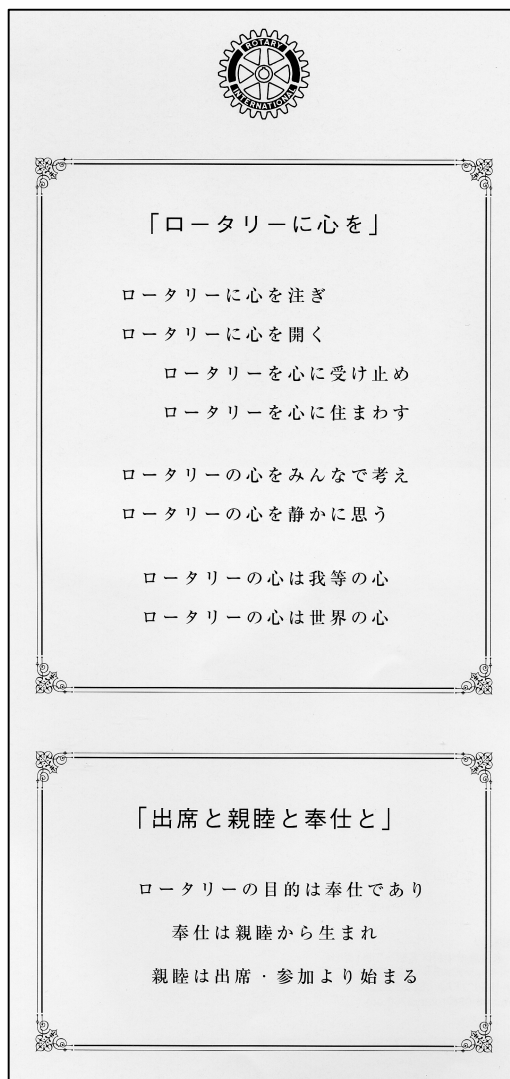 ROTARY
INTERNATIONAL
「ロータリーに心を」
ロータリーに心を注ぎ
ロータリーに心を開く
ロータリーを心に受け止め
ロータリーを心に住まわす
ロータリーの心をみんなで考え
ロータリーの心を静かに思う
ロータリーの心は我等の心
ロータリーの心は世界の心
「出席と親睦と奉仕と」
ロータリーの目的は奉仕であり
奉仕は親睦から生まれ
親睦は出席・参加より始まる